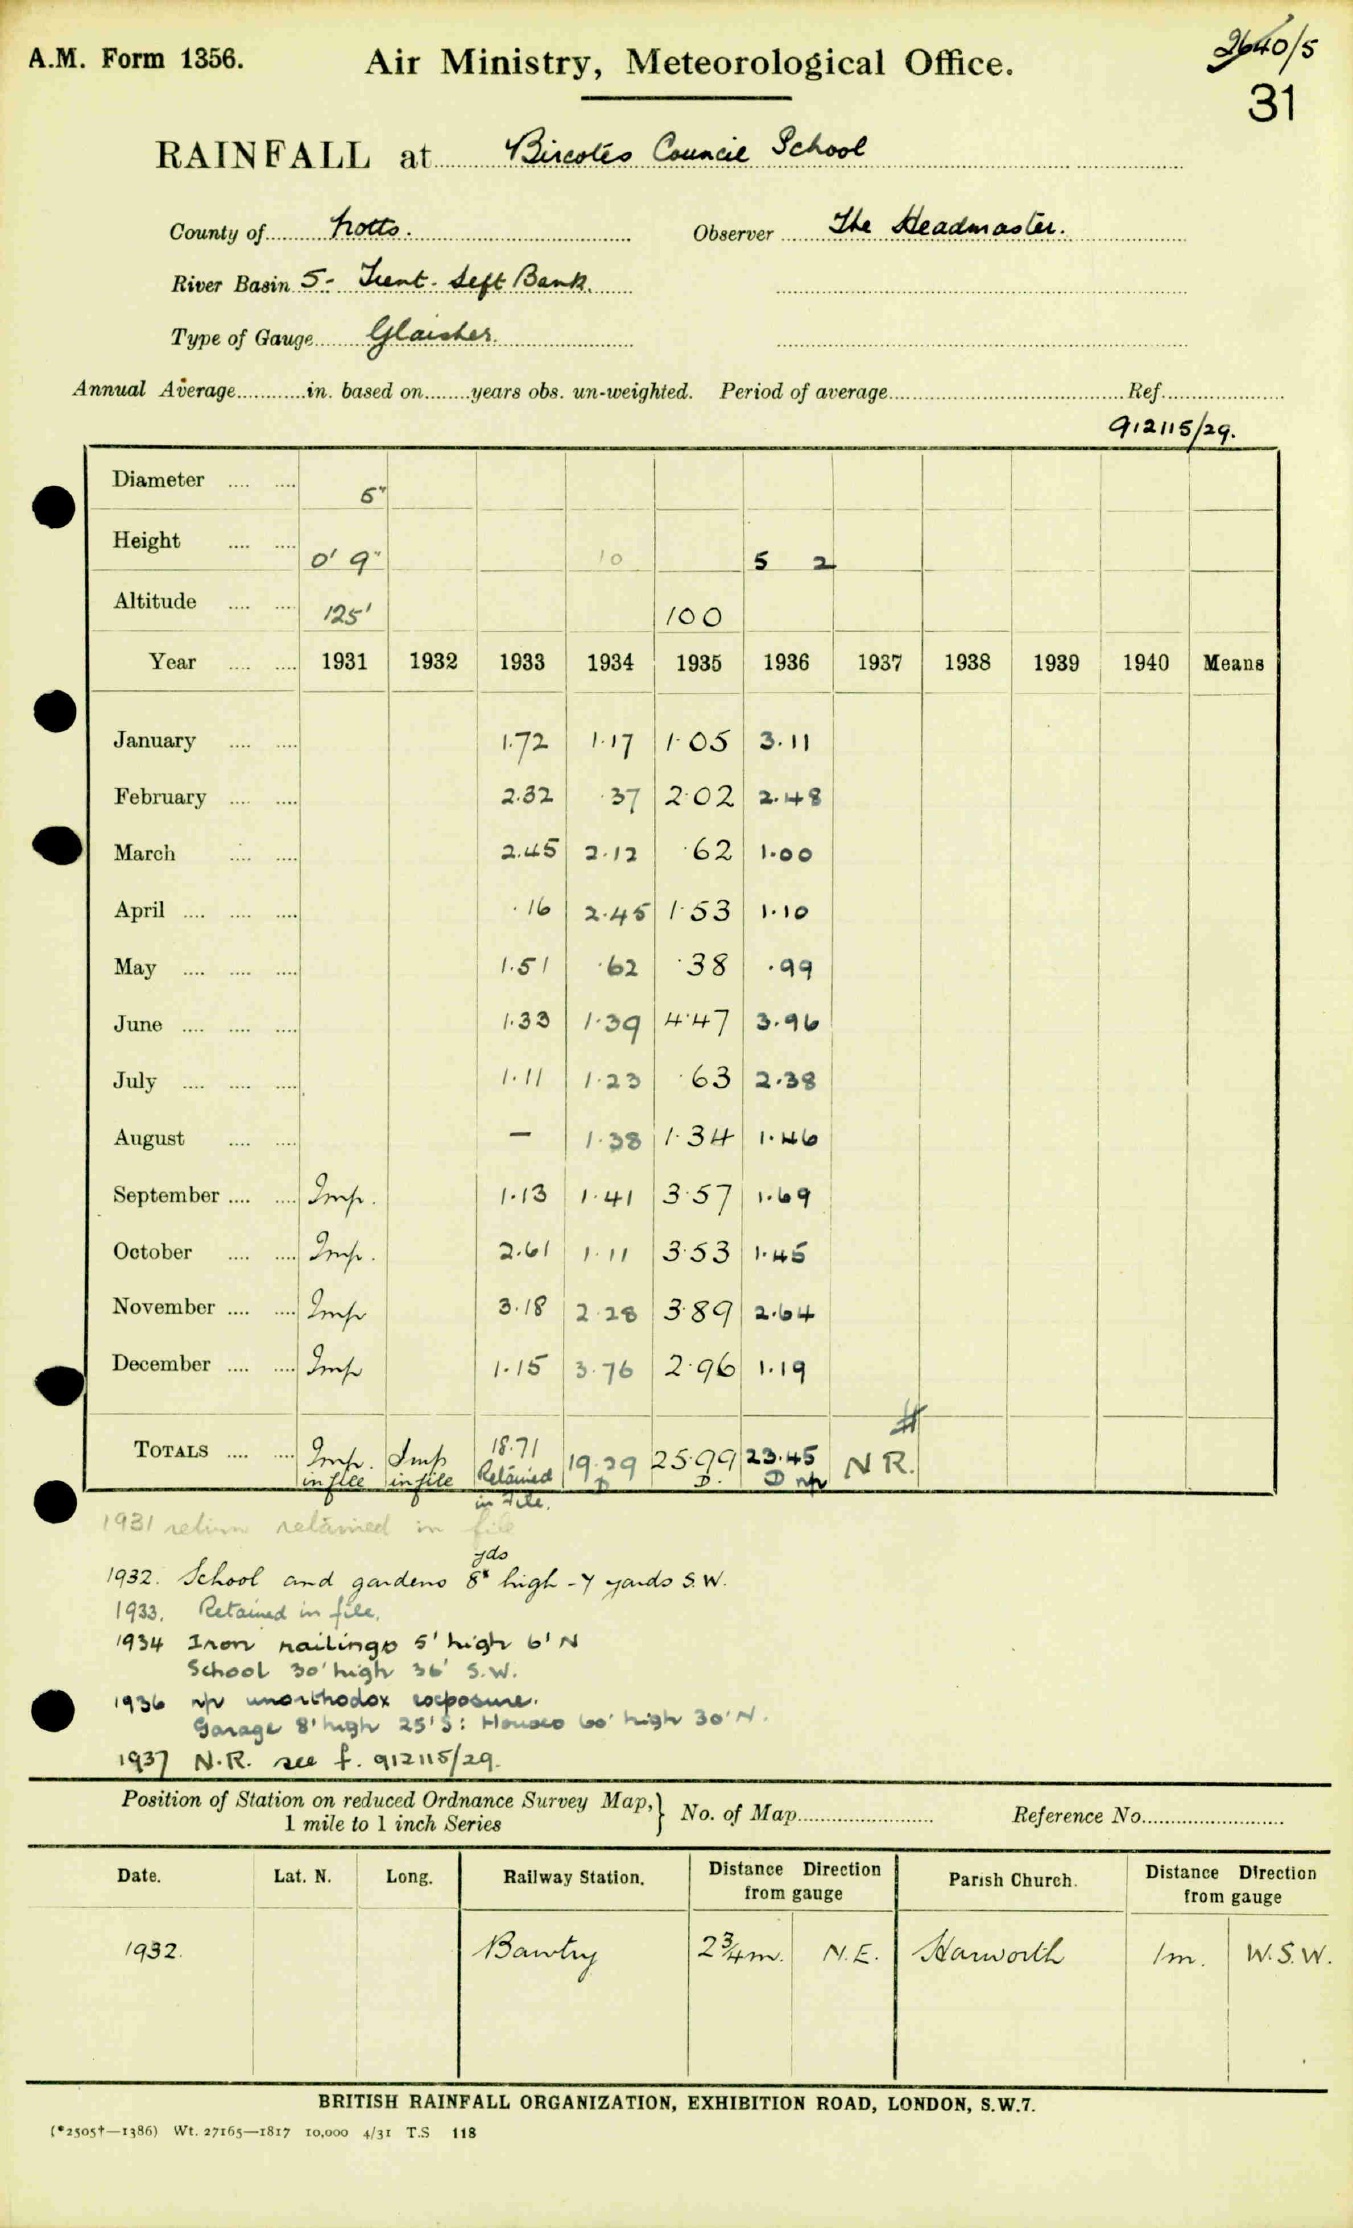 A.M. Form 1356.
Air Ministry, Meteorological Office.
2640/5
31
RAINFALL at Bircotes Council School
County of Notts. Observer The Headmaster.
River Basin 5 - Trent - Left Bank.
Type of Gauge Glaisher.
Annual Average in. based on years obs. un-weighted. Period of average Ref.
912115/29.
Diameter 5"
Height 0' 9" 10 5 2
Altitude 125' 100
Year 1931 1932 1933 1934 1935 1936 1937 1938 1939 1940 Means
January 1.72 1.17 1.05 3.11
February 2.32 .37 2.02 2.48
March 2.45 2.12 .62 1.00
April .16 2.45 1.53 1.10
May 1.51 .62 .38 .99
June 1.33 1.39 4.47 3.96
July 1.11 1.23 .63 2.38
August — 1.38 1.34 1.46
September Imp. 1.13 1.41 3.57 1.69
October Imp. 2.61 1.11 3.53 1.45
November Imp 3.18 2.28 3.89 2.64
December Imp 1.15 3.76 2.96 1.19
TOTALS Imp. in file Imp in file 18.71 Retained in File. 19.29 D 25.99 D. 23.45 D np N R.
1931 return retained in file
yds
1932. School and gardens 8" high - 7 yards S.W.
1933. Retained in file.
1934 Iron railings 5' high 6' N
School 30' high 36' S.W.
1936 np unorthodox exposure.
Garage 8' high 25' S: Houses 60' high 30' N.
1937 N.R. see f. 912115/29.
Position of Station on reduced Ordnance Survey Map, } No. of Map Reference No.
1 mile to 1 inch Series
Date. Lat. N. Long. Railway Station. Distance Direction from gauge Parish Church. Distance Direction from gauge
1932. Bawtry 2¾m. N.E. Harworth 1m. W.S.W.
BRITISH RAINFALL ORGANIZATION, EXHIBITION ROAD, LONDON, S.W.7.
(*2505†—1386) Wt. 27165—1817 10,000 4/31 T.S 118